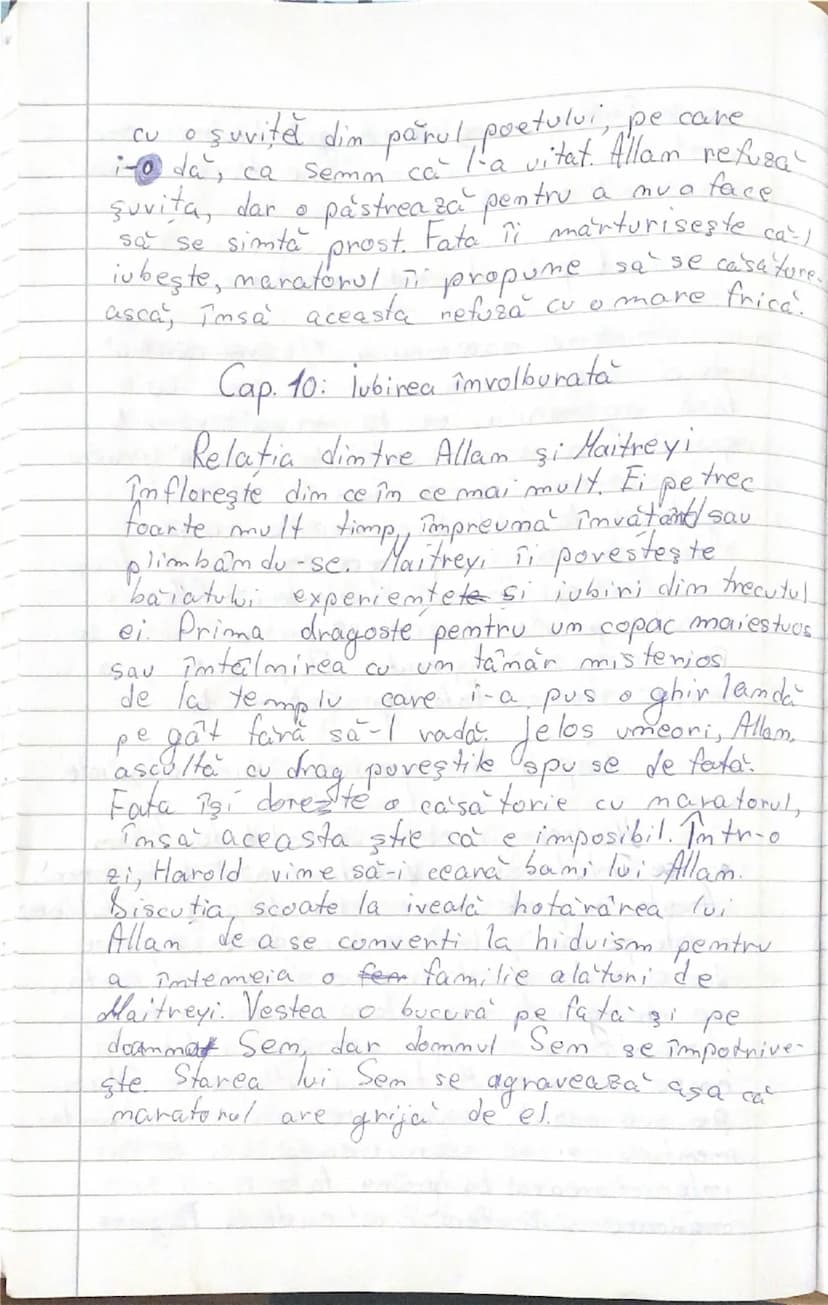 cu o șuviță din părul poetului, pe care
i-o dă, ca semn că l-a uitat. Allan refuză
șuvița, dar o păstrează pentru a nu a face
să se simtă prost. Fata îi mărturisește că-l
iubește, naratorul îi propune să se căsătore-
ască, însă aceasta refuză cu o mare frică.
Cap. 10: Iubirea învolburată
Relația dintre Allan și Maitreyi
înflorește din ce în ce mai mult. Ei petrec
foarte mult timp, împreună învățând sau
plimbându-se. Maitreyi îi povestește
băiatului experiențele și iubiri din trecutul
ei. Prima dragoste pentru un copac maiestuos
sau întâlnirea cu un tânăr misterios
de la templu care i-a pus o ghirlandă
pe gât fără să-l vadă. Jelos uneori, Allan,
ascultă cu drag poveștile spuse de fată.
Fata își dorește o căsătorie cu naratorul,
însă aceasta știe că e imposibil. Într-o
zi, Harold vine să-i ceară bani lui Allan.
Discuția scoate la iveală hotărârea lui
Allan de a se converti la hiduism pentru
a întemeia o fem familie alături de
Maitreyi. Vestea o bucură pe fată și pe
doamna Sen, dar domnul Sen se împotrive-
ște. Starea lui Sen se agravează așa că
naratorul are grijă de el.